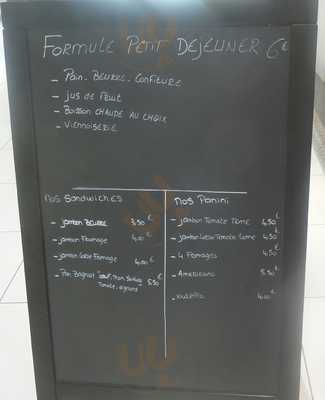 FORMULE PETIT DEJEUNER 6€
- Pain. BEURRE. CONFITURE
- jus de FRUIT
- BOISSON CHAUDE AU CHOIX
- VIENNOISERIE
NOS SANDWICHES
- jambon BEURRE 3,50€
- jambon Fromage 4,00€
- jambon Fromage 4,00€
- Pan Bagnat 5,50€
Tomate, oignons
NOS Panini
- jambon Tomate Tome 4,50€
- jambon Tomate Tome 4,50€
- 4 Fromages 4,50
- Americano 5,50€
- nutella 4,00€